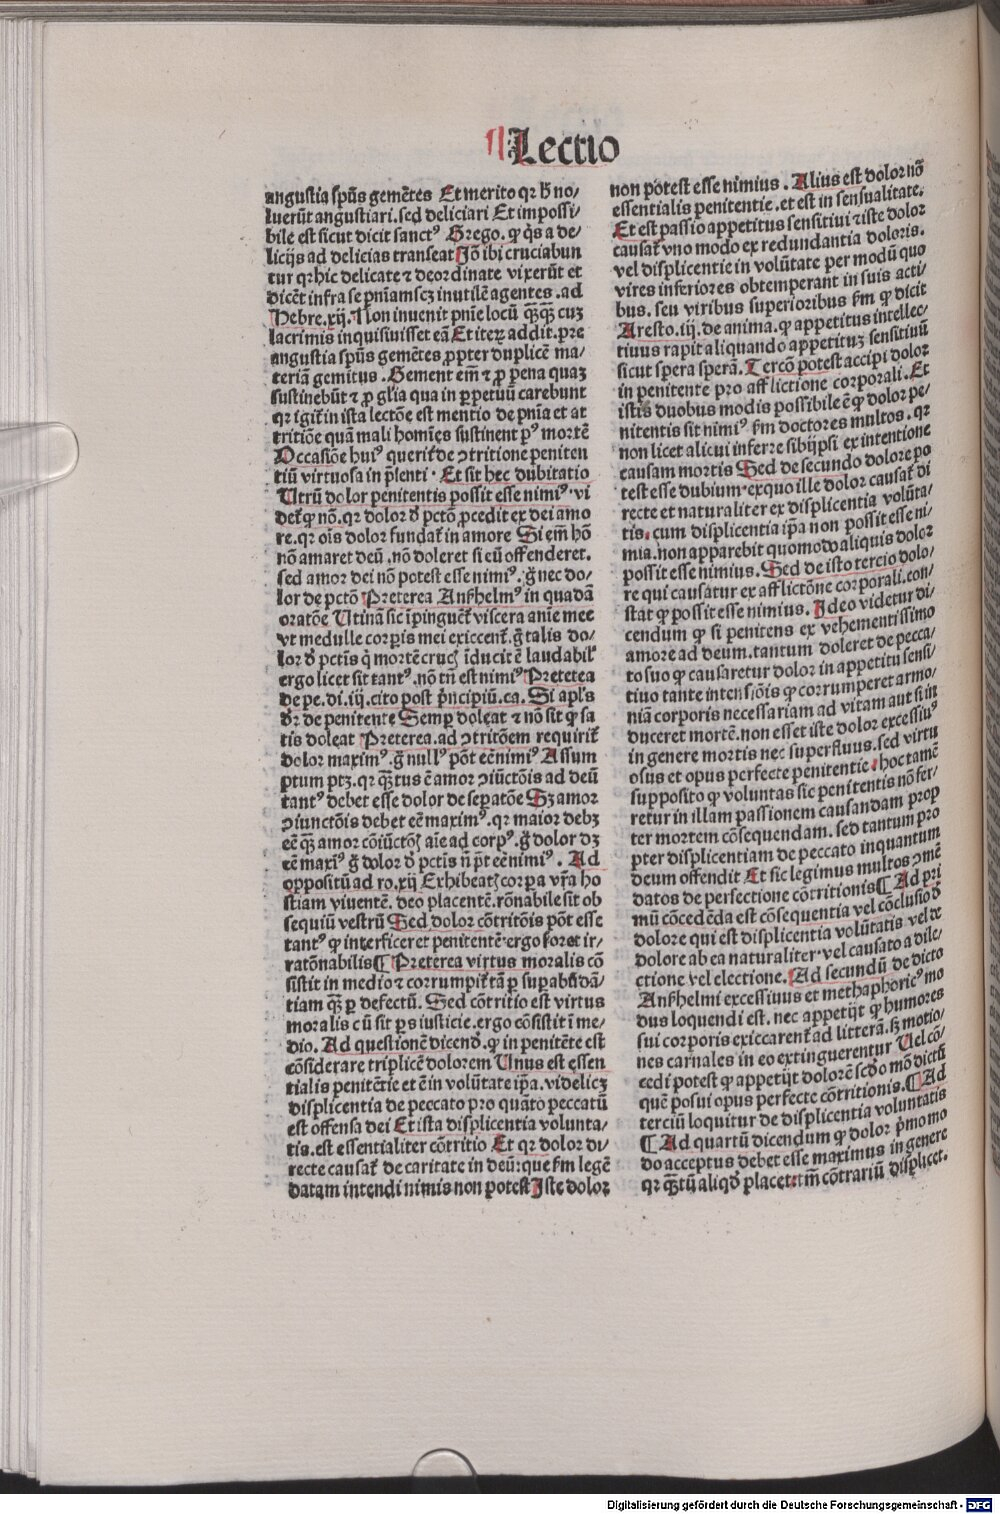 Lectio
angustia spūs gemētes Et merito qꝛ hͦ no/
luerūt angustiari.sed deliciari Et impossi/
bile est sicut dicit sanctꝰ Grego. ꝙ qͥs a de/
licijs ad delicias transeat Jō ibi cruciabun
tur qꝛ hic delicate ⁊ deordinate vixerūt et
dicēt infra se pn̄iam scꝫ inutilē agentes.ad
Hebre.xij. Non inuenit pn̄ie locū qͣꝫqͣꝫ cuꝫ
lacrimis inquisiuisset eā Et iteꝝ addit.p̄re
angustia spūs gemētes ꝓpter duplicē ma/
teriā gemitus. Gement em̄ ⁊ ꝓ pena quaꝫ
sustinebūt ⁊ ꝓ glīa qua in ꝑpetuū carebunt
qꝛ igit̄ in ista lectōe est mentio de pn̄ia et at
tritiōe quā mali homīes sustinent pꝰ mortē
Occasiōe huiꝰ querit̄ de ↄtritione peniten
tiū virtuosa in p̄senti. Et sit hec dubitatio
Utrū dolor penitentis possit esse nimiꝰ. vi
det̄ ꝙ nō.qꝛ dolor ꝺ pctō ꝓcedit ex dei amo
re.qꝛ oīs dolor fundat̄ in amore Si em̄ hō
nō amaret deū .nō doleret si eū offenderet.
sed amor dei nō potest esse nimiꝰ. g̊ nec do/
lor de pctō Preterea Anshelmꝰ in quadā
oratōe Utinā sic īpinguēt̄ viscera anīe mee
vt medulle corꝑis mei exiccent̄. g̊ talis do/
lor ꝺ pctīs qͥ mortē cruc̄ īducit ē laudabil̓
ergo licet sit tantꝰ .nō tn̄ est nimiꝰ Pretetea
de pe.di.iij.cito post pͥncipiū.ca. Si apl̓s
dr̄ de penitente Semꝑ doleat ⁊ nō sit ꝙ sa
tis doleat Preterea.ad ↄtritōem requirit̄
dolor maximꝰ. g̊ nullꝰ pōt eē nimiꝰ Assum
ptum ptꝫ.qꝛ qͣꝫtus ē amor ↄiūctōis ad deū
tantꝰ debet esse dolor de seꝑatōe Sꝫ amor
ↄiunctōis debet eē maximꝰ.qꝛ maior debꝫ
eē qͣꝫ amor cōiūctōis aīe ad corpꝰ. g̊ dolor dꝫ
eē maxīꝰ g̊ dolor ꝺ pctīs n̄ pt̄ eē nimiꝰ . Ad
oppositū ad ro.xij Exhibeatis corꝑa vr̄a ho
stiam viuentē. deo placentē.rōnabile sit ob
sequiū vestrū Sed dolor cōtritōis pōt esse
tantꝰ ꝙ interficeret penitentē.ergo foret ir/
ratōnabilis ¶ Preterea virtus moralis cō
sistit in medio ⁊ corrumpit̄ tā ꝑ supabūdā/
tiam qͣꝫ ꝑ defectū. Sed cōtritio est virtus
moralis cū sit ꝑs iusticie.ergo cōsistit ī me/
dio. Ad questionē dicend̄. ꝙ in penitēte est
cōsiderare triplicē dolorem Unus est essen
tialis penitētie et ē in volūtate ip̄a.videlicꝫ
displicentia de peccato pro quāto peccatū
est offensa dei Et ista displicentia volunta/
tis.est essentialiter cōtritio Et qꝛ dolor di/
recte causat̄ de caritate in deū:que ẜm legē
datam intendi nimis non potest Iste dolor
non potest esse nimius . Alius est dolor nō
essentialis penitentie.et est in sensualitate.
Et est passio appetitus sensitiui ⁊ iste dolor
causat̄ vno modo ex redundantia doloris.
vel displicentie in volūtate per modū quo
vires inferiores obtemperant in suis acti/
bus. seu viribus superioribus ẜm ꝙ dicit
Aresto.iij.de anima. ꝙ appetitus intellec/
tiuus rapit aliquando appetituꝫ sensitiuū
sicut spera sperā. Tercō potest accipi dolor
in penitente pro afflictione corporali. Et
istis duobus modis possibile ē ꝙ dolor pe/
nitentis sit nimiꝰ ẜm doctores multos. qꝛ
non licet alicui inferre sibijpsi ex intentione
causam mortis Sed de secundo dolore po
test esse dubium.exquo ille dolor causat̄ di
recte et naturaliter ex displicentia volūta/
tis. cum displicentia ip̄a non possit esse ni/
mia.non apparebit quomodo aliquis dolor
possit esse nimius. Sed de isto tercio dolo/
re qui causatur ex afflictōne corporali.con/
stat ꝙ possit esse nimius. Ideo videtur di/
cendum ꝙ si penitens ex vehementissimo
amore ad deum.tantum doleret de pecca/
to suo ꝙ causaretur dolor in appetitu sensi/
tiuo tante intensiōis ꝙ corrumperet armo/
niā corporis necessariam ad vitam aut si in
duceret mortē.non esset iste dolor excessiuꝰ
in genere mortis nec superfluus.sed virtu
osus et opus perfecte penitentie. hoc tamē
supposito ꝙ voluntas sic penitentis nō fer/
retur in illam passionem causandam prop
ter mortem cōsequendam. sed tantum pro
pter displicentiam de peccato inquantum
deum offendit Et sic legimus multos ↄmē
datos de perfectione cōtritionis ¶ Ad pri
mū cōcedēda est cōsequentia vel cōclusio ꝺ
dolore qui est displicentia volūtatis vel de
dolore ab ea naturaliter.vel causato a dile/
ctione vel electione. Ad secundū de dicto
Anshelmi excessiuus et methaphoricꝰ mo
dus loquendi est. nec appetijt ꝙ humores
sui corporis exiccarent̄ ad litterā.sꝫ motio/
nes carnales in eo extinguerentur Uel cō/
cedi potest ꝙ appetijt dolorē scd̄o mō dictū
quē posui opus perfecte cōtritionis. ¶ Ad
terciū loquitur de displicentia voluntatis
¶ Ad quartū dicendum ꝙ dolor pͥmo mo
do acceptus debet esse maximus in genere
qꝛ qͣꝫtū aliqd̄ placet.tm̄ cōtrariū displicet.
Digitalisierung gefördert durch die Deutsche Forschungsgemeinschaft - DFG